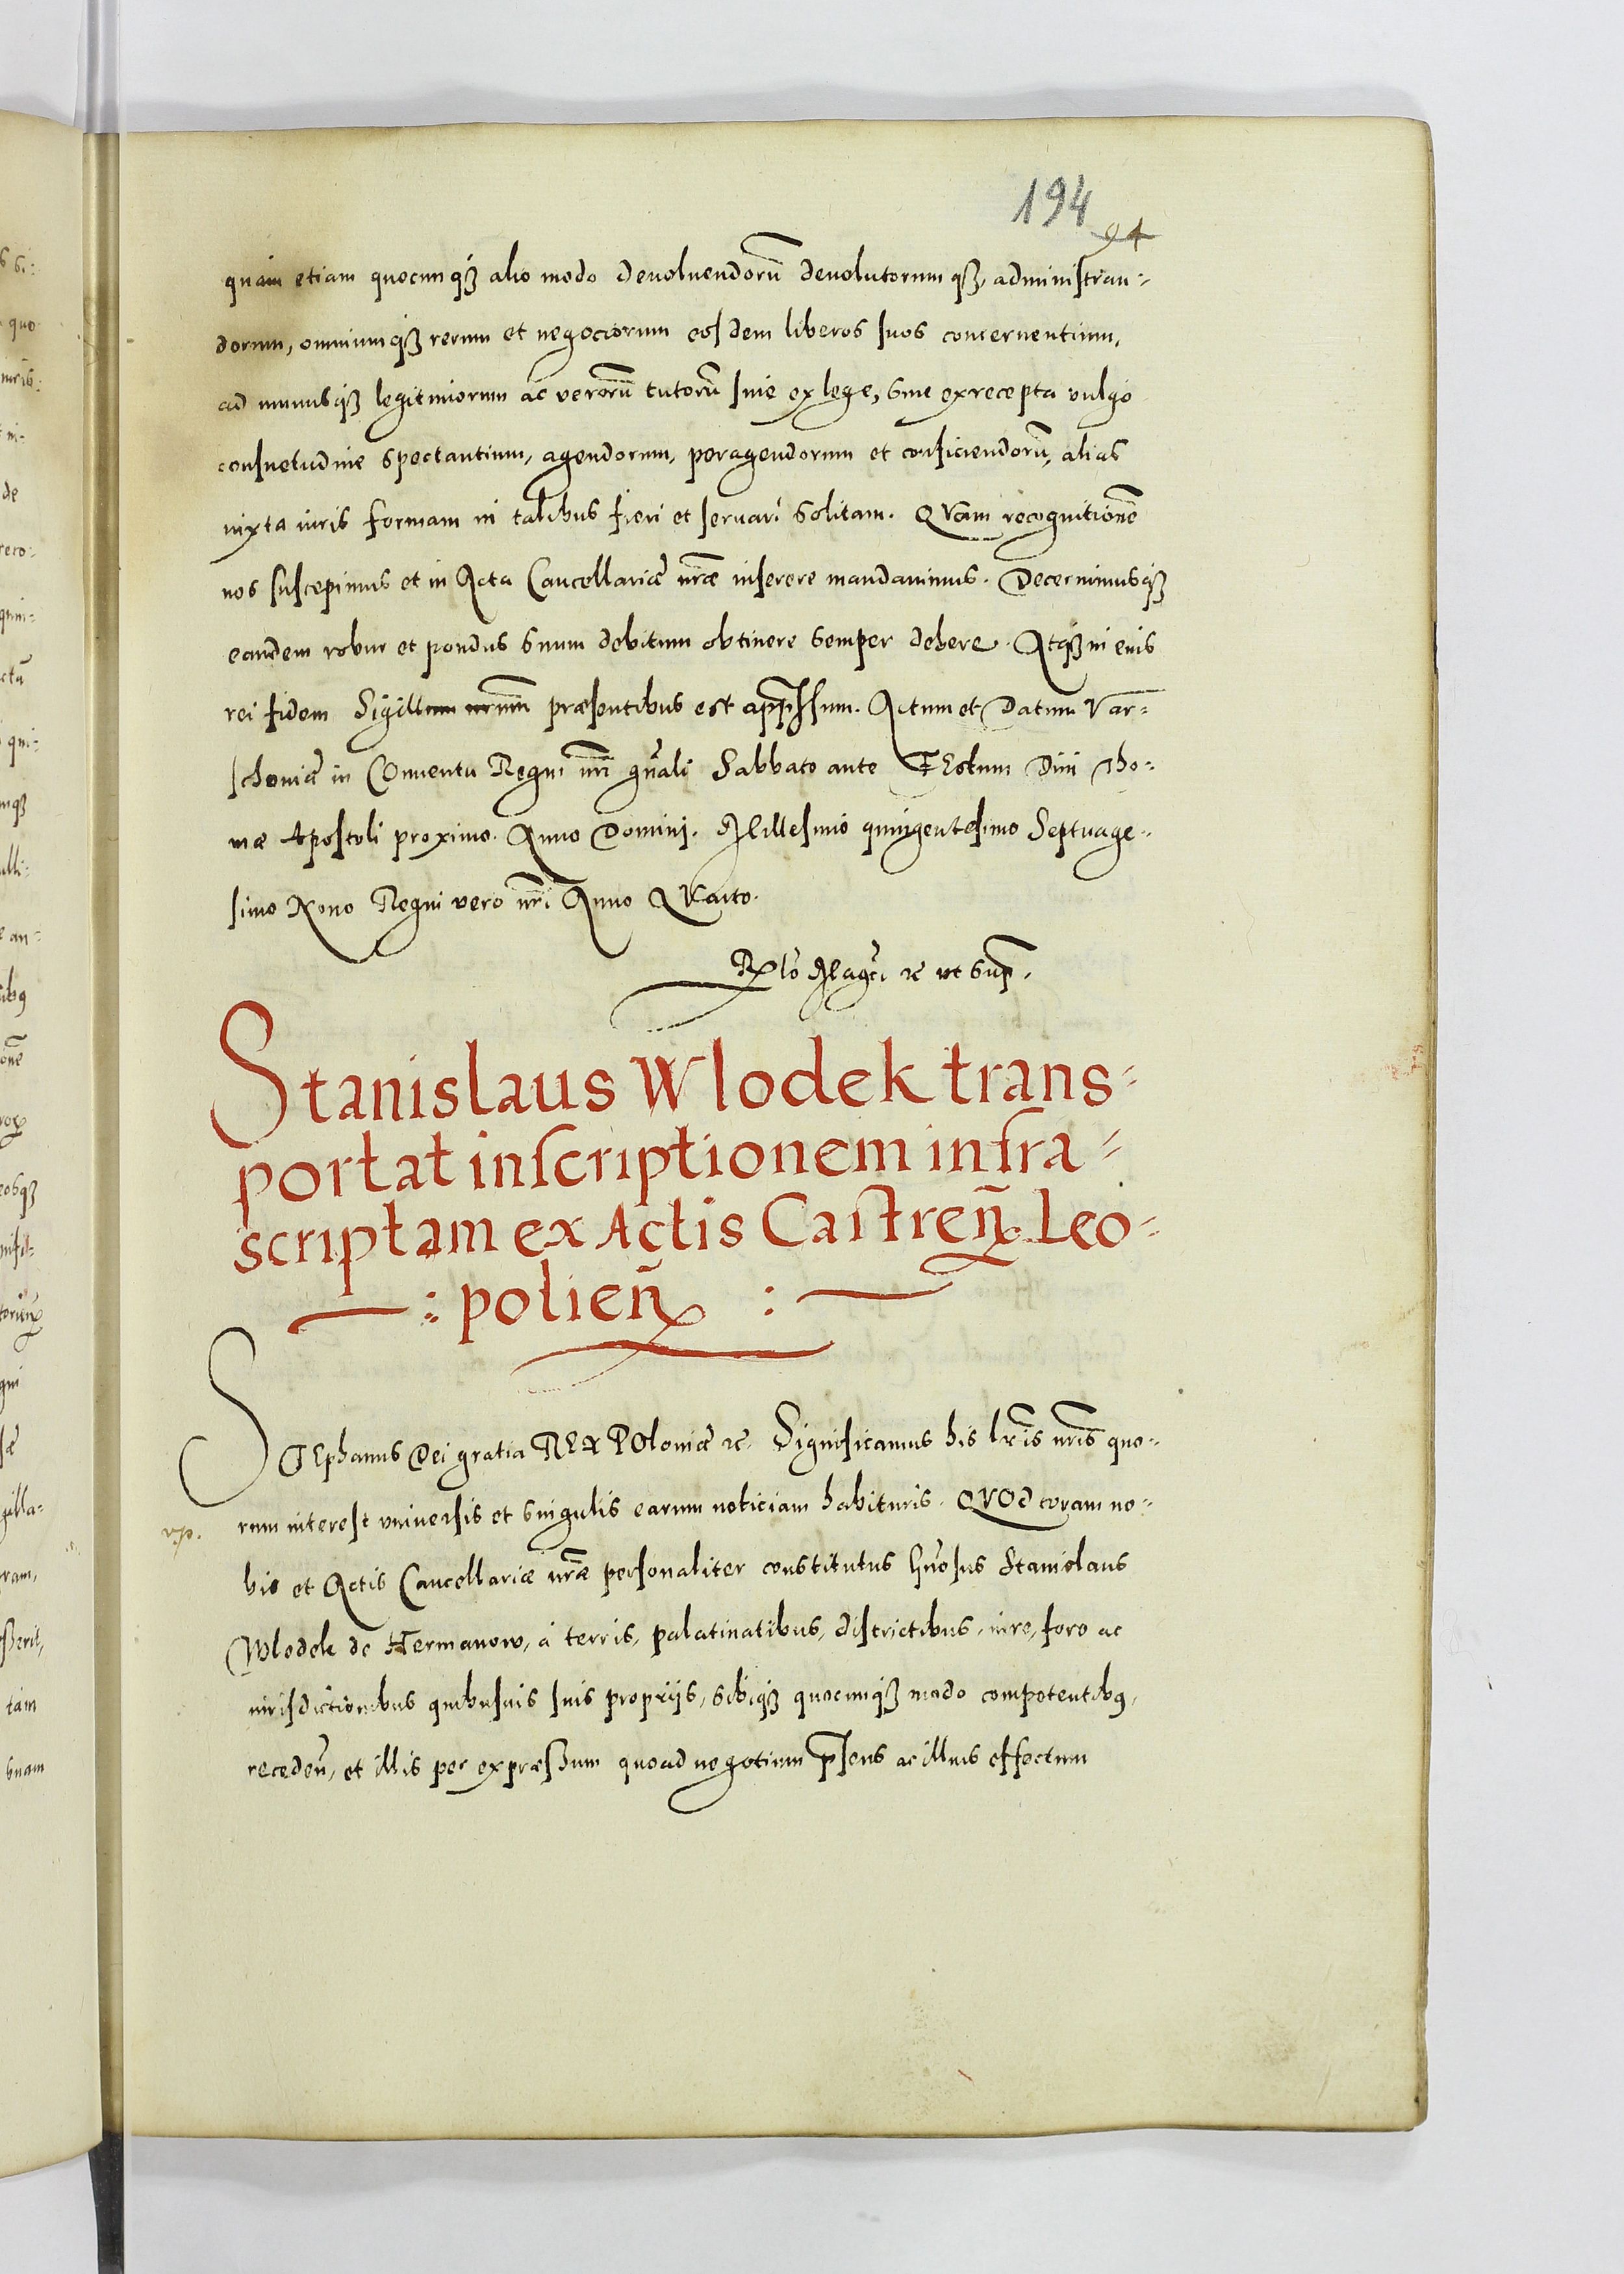 194
94
quam etiam quocunq₃ alio modo deuoluendorũ deuolutorumq₃, administran-
dorum, omniumq₃ rerum et negociorum eosdem liberos suos concernentium,
ad munusq₃ legitimorum ac verorũ tutorũ siue ex lege, siue ex recepta vulgo
consuetudine spectantium, agendorum, peragendorum et conficiendorũ, alias
iuxta iuris formam in talibus fieri et seruari solitam. QVam recognitionẽ
nos suscepimus et in Acta Cancellariæ nr̃æ inserere mandauimus. Decernimusq₃
eandem robur et pondus suum debitum obtinere semper debere. Atq₃ in eius
rei fidem Sigillum nr̃um præsentibus est app̃ssum. Actum et Datum Var-
schouiæ in Conuentu Regni nr̃i gñali Sabbato ante FEstum Diui Tho-
mæ Apostoli proximo. Anno Domini. Millesimo quingentesimo Septuage-
simo Nono Regni vero nr̃i Anno QVarto.
Rłto Magci ꝛc vt sup̃.
Stanislaus Wlodek trans-
portat inscriptionem infra-
scriptam ex Actis Castren̄. Leo-
: polien̄ :
STEphanus Dei gratia REX POloniæ ꝛc. Significamus his lr̃is nr̃is quo-
rum interest vniuersis et singulis earum noticiam habituris. QVOd coram no-
bis et Actis Cancellariæ nr̃æ personaliter constitutus Gñosus Stanislaus
Wlodek de Hermanow, à terris, palatinatibus, districtibus, iure, foro ac
iurisdictionibus quibusuis suis proprijs, sibiq₃ quocunq₃ modo competentibꝯ,
receden̄, et illis per expræssum quoad negotium p̃sens ac illius effectum